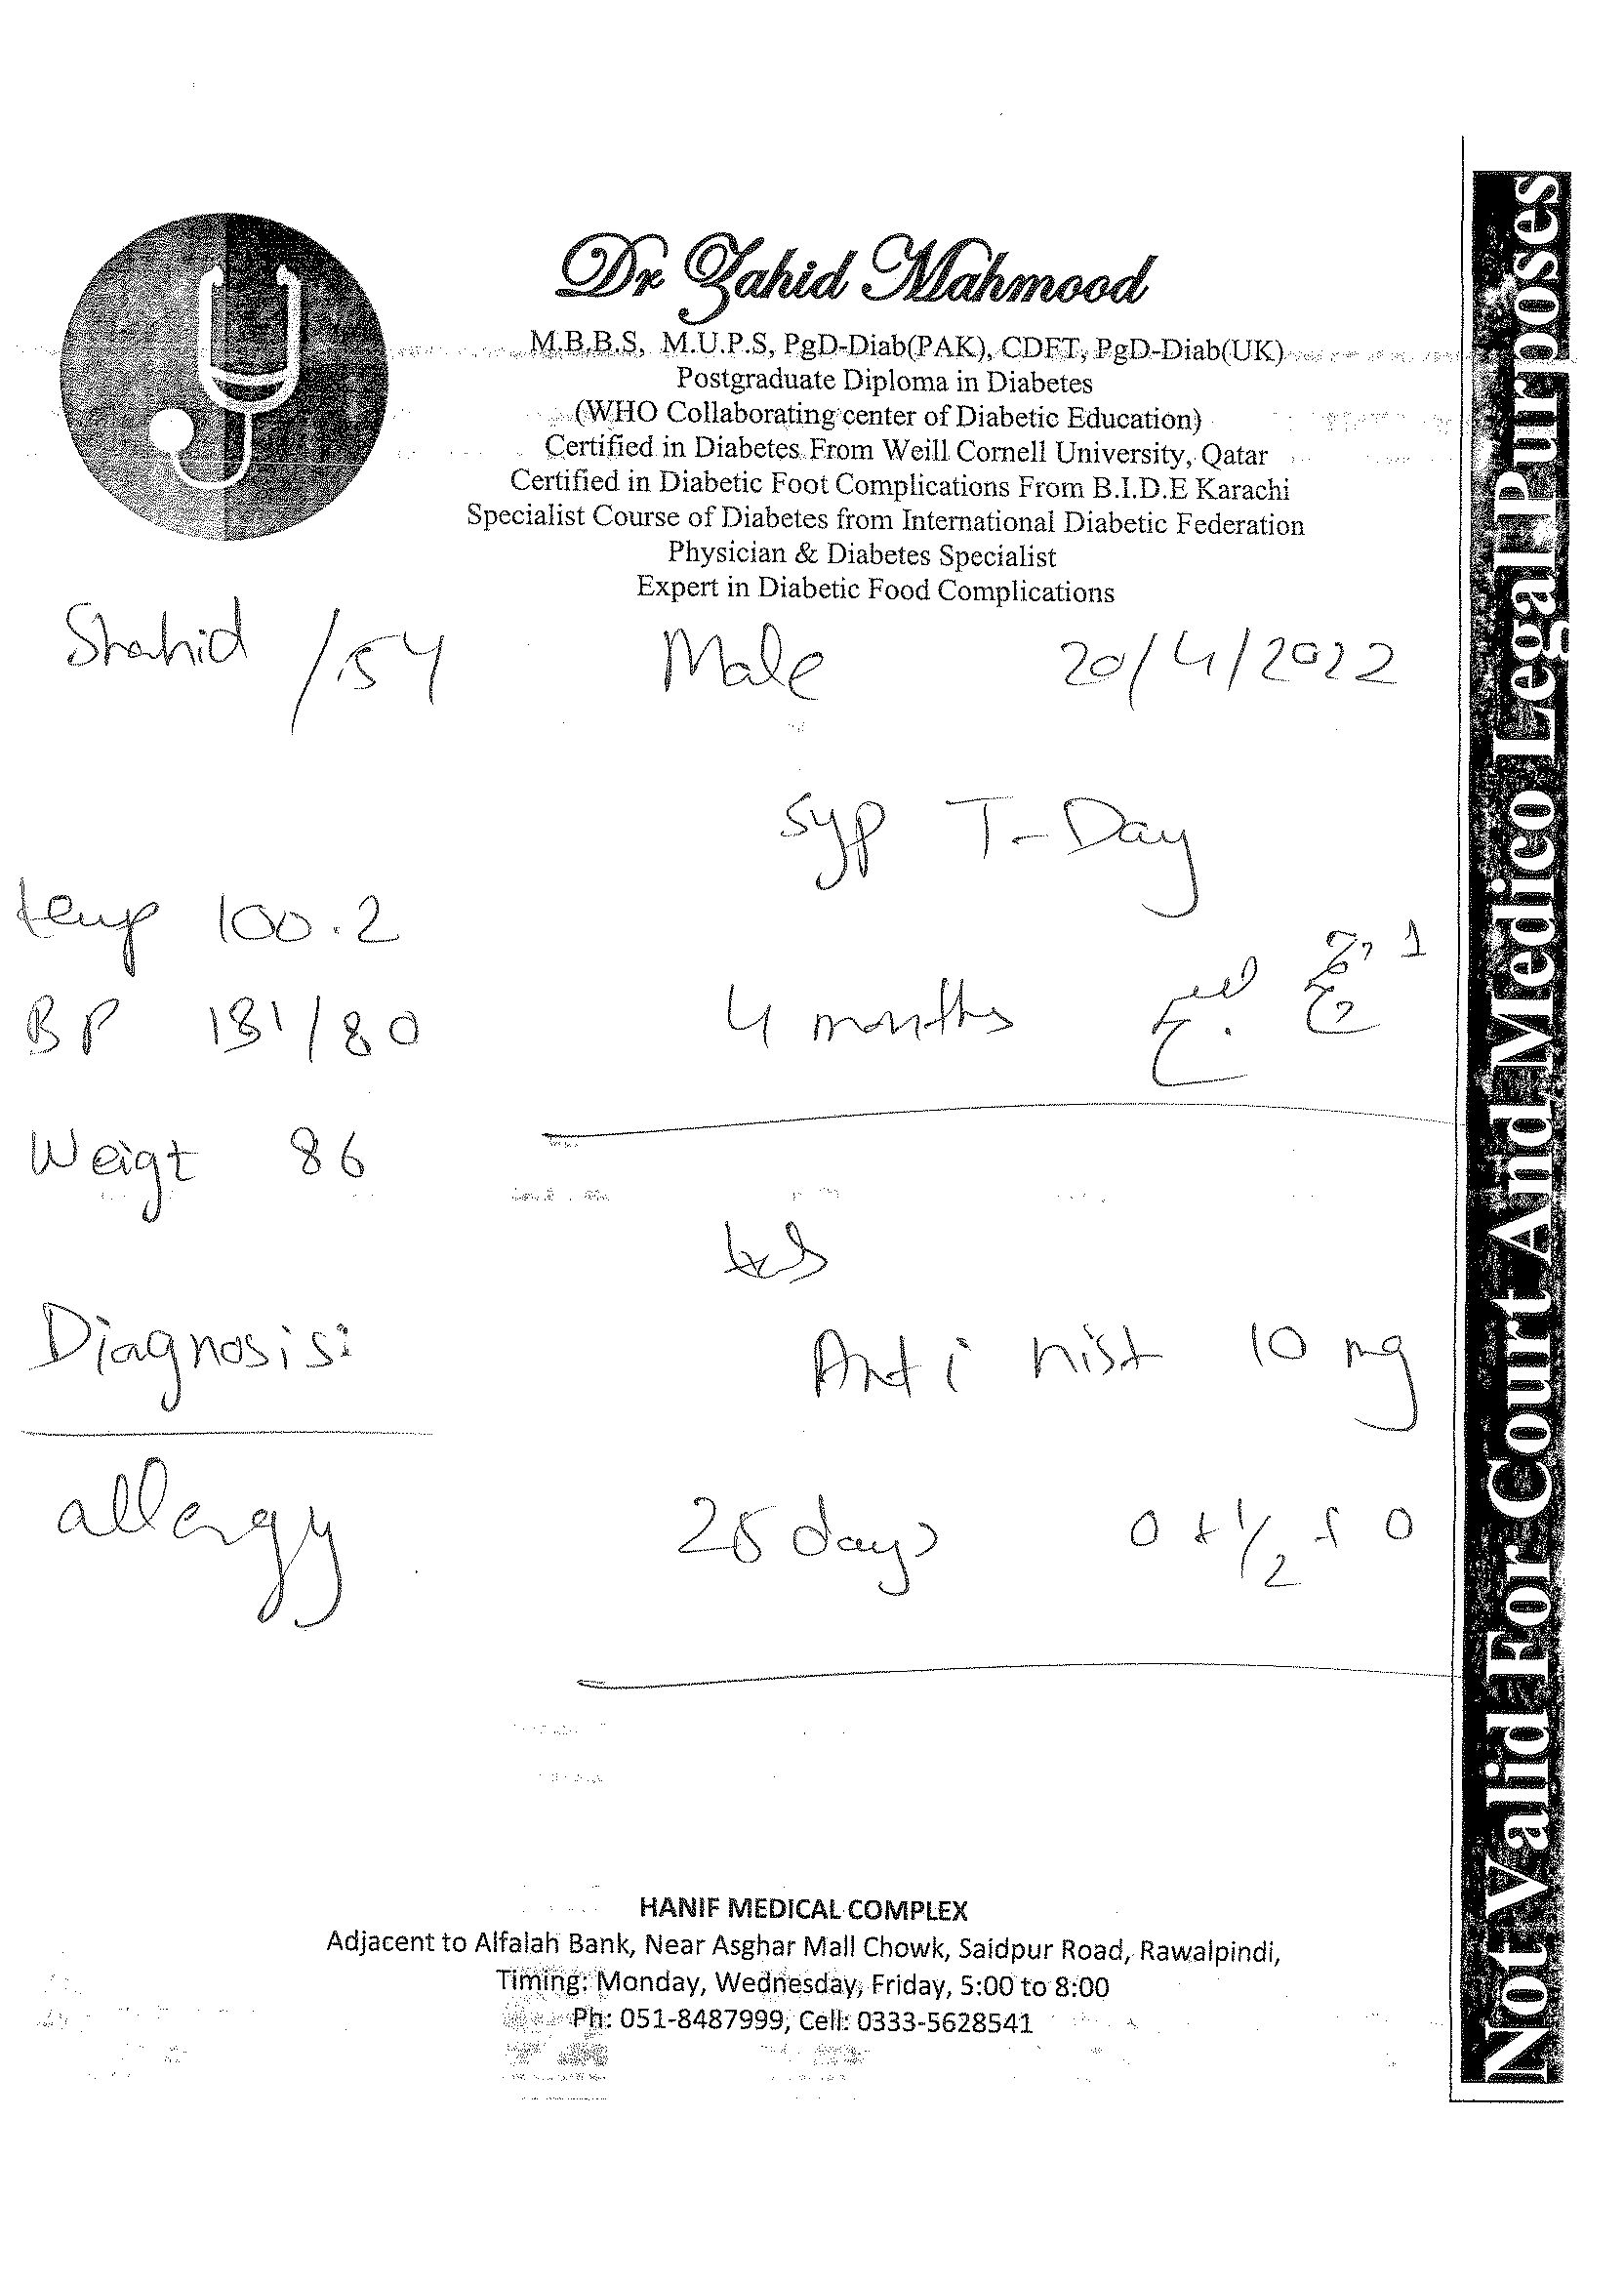 Dr Zahid Mahmood
M.B.B.S, M.U.P.S, PgD-Diab(PAK), CDFT, PgD-Diab(UK)
Postgraduate Diploma in Diabetes
(WHO Collaborating center of Diabetic Education)
Certified in Diabetes From Weill Cornell University, Qatar
Certified in Diabetic Foot Complications From B.I.D.E Karachi
Specialist Course of Diabetes from International Diabetic Federation
Physician & Diabetes Specialist
Expert in Diabetic Food Complications
Shahid /54 Male 20/4/2022
Syp T-Day
temp 100.2
1 چمچ صبح 4 months
BP 131/80
Weigt 86
Diagnosis:
Anti hist 10 mg
allergy
days 0 + 1/2 + 0
HANIF MEDICAL COMPLEX
Adjacent to Alfalah Bank, Near Asghar Mall Chowk, Saidpur Road, Rawalpindi,
Timing: Monday, Wednesday, Friday, 5:00 to 8:00
Ph: 051-8487999, Cell: 0333-5628541
Not Valid For Court And Medico Legal Purposes